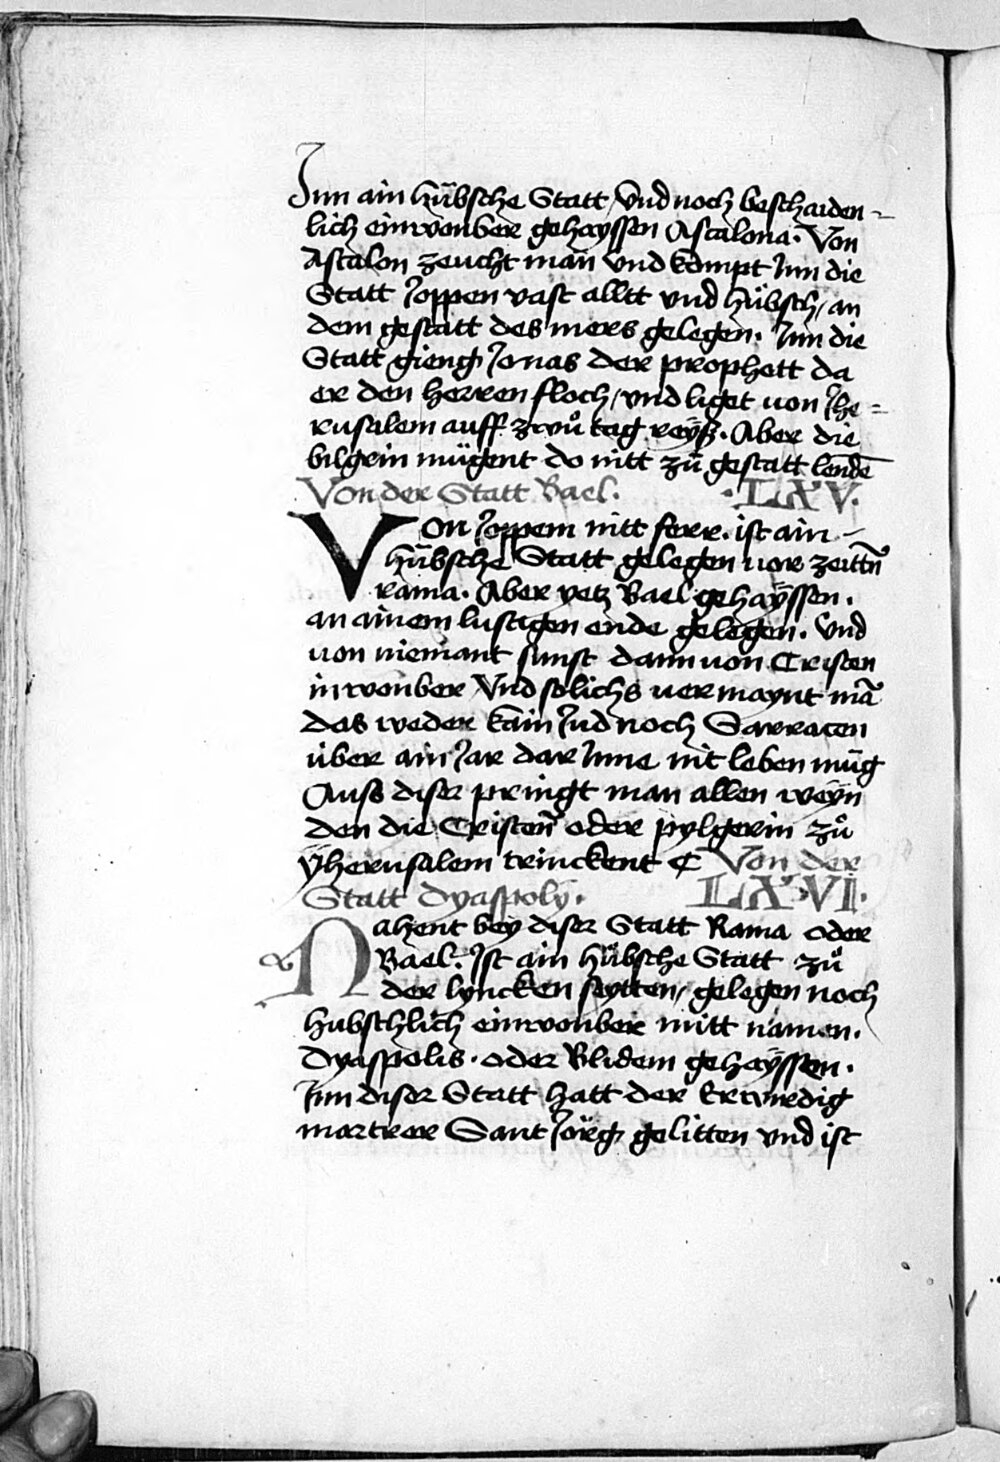 Inn ain hübsche Statt / Vnd noch beschaiden-
lich einwonber gehayssen Ascalona. Von
Ascalon zeucht man vnd kompt Inn die
Statt Joppen vast alltt vnd hübsch / an
dem gestatt des mers gelegen. Inn die
Statt gieng Jonas der prophett da
er den herren floch / vnd liget von Jhe=
rusalem auff zwů tag reÿß. Aber die
bilgrin mügent do nitt zů gestatt lendē
Von der Statt Bael. .LXV.
Von Joppem nitt ferr. ist ain
hübsche Statt gelegen vor zeittn̄
rama. Aber yetz Bael gehaÿssen.
an ainem lustigen ende gelegen. Vnd
von niemant sunst dann von Cristen
inwonber Vnd solichs vermaynt mā
das weder kain Jud noch Sarracen
über ain Jar dar Jnne nit leben müg
Auss diser pringt man allen weÿn
den die Cristen̄ oder pylgerin zů
ÿherusalem trinckent ¶ Von der
Statt Dyaspoly. LXVI.
Nahent bey diser Statt Rama oder
Bael. Ist ain hübsche Statt zů
der lyncken seytten / gelegen noch
hubschlich einwonber mitt namen.
Dyaspolis. oder Blidem gehaÿssen.
Inn diser Statt hatt der Erwirdig
martrer Sant Jörg gelitten vnd ist